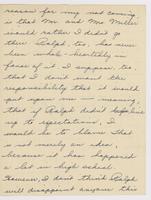 reason for my not coming
is that Mr. and Mrs. Miller
would rather I didn't go
then. Ralph, too, has never
been whole-heartedly in
favor of it I suppose, too,
that I don't want the
responsibility that it would
put upon me — meaning,
that if Ralph didn't
up to expectations, I
would be to blame. That
is not merely an idea,
because it has happened
a lot in high school.
However, I don't think Ralph
will disappoint anyone this